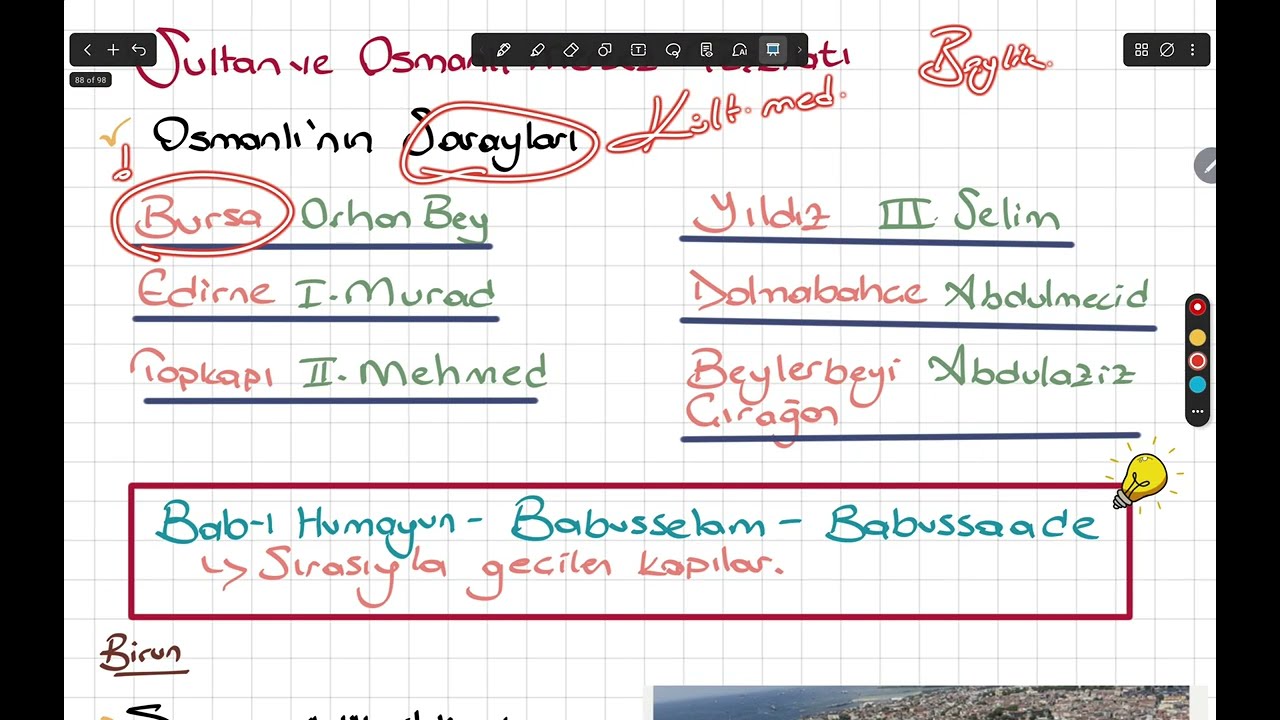 Sultan ve Osmanlı
Beylik.
88 of 98
Osmanlı'nın Sarayları Kült. med.
Bursa Orhan Bey
Edirne I. Murad
Topkapı II. Mehmed
Yıldız III Selim
Dolmabahçe Abdulmecid
Beylerbeyi Abdulaziz
Çırağan
Bab-ı Humayun - Babusselam - Babussaade
↳ Sırasıyla geçilen kapılar.
Birun